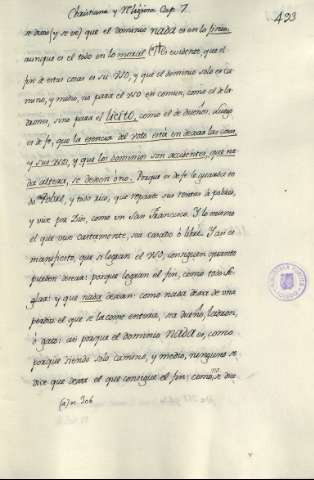 Christiana y Religiosa Cap. 7.
493
se dixo (y se ve) que el dominio nada es en lo fisico,
aunque es el todo en lo moral (a) Es evidente, que el
fin de estas cosas es su uso, y que el dominio solo es ca-
mino, y medio, no para el uso en comun, como el de la-
drones, sino para el licito, como el de dueños. Luego
es de fe, que la esencia del voto esta en dexar las cosas,
y su uso, y que los dominios son accidentes, que na-
da altera, se dexen ó no. Porque es de fe la guarda
de Pobres, y todo rico, que reparte sus rentas á pobres,
y vive por Dios, como un San Francisco. Y lo mismo
el que vive castamente, sea casado ó libre. Y asi es
manifiesto, que si logran el uso, consiguen quanto
pueden desear: porque logran el fin, como todo
y que nada dexan: como nada dexa de una
perdiz el que se la come entera, sea dueño, ladron,
ó gato: asi porque el dominio nada es, como
porque siendo solo camino, y medio, ninguno se
dice que dexa el que consigue el fin; como se dice
(a) n. 306